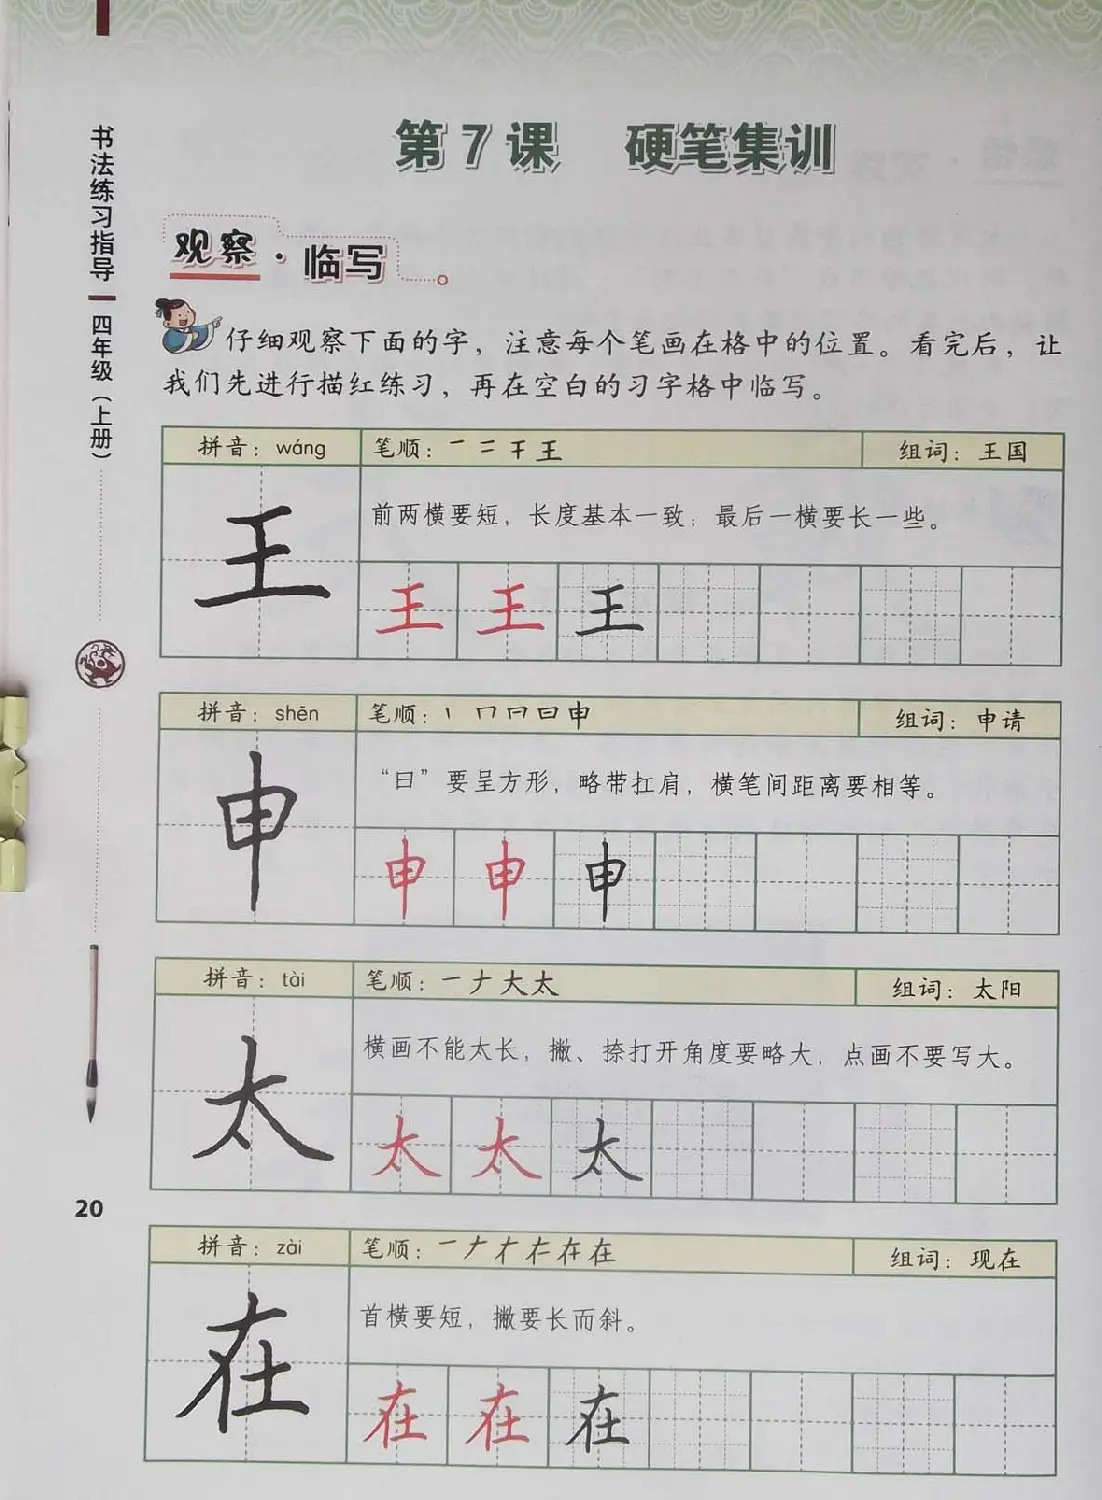 书法练习指导 四年级（上册）
第7课 硬笔集训
观察·临写
仔细观察下面的字，注意每个笔画在格中的位置。看完后，让
我们先进行描红练习，再在空白的习字格中临写。
拼音：wáng 笔顺：一 二 干 王 组词：王国
王
前两横要短，长度基本一致；最后一横要长一些。
王 王 王
拼音：shēn 笔顺：丨 冂 冃 日 申 组词：申请
申
“曰”要呈方形，略带扛肩，横笔间距离要相等。
申 申 申
拼音：tài 笔顺：一 ナ 大 太 组词：太阳
太
横画不能太长，撇、捺打开角度要略大，点画不要写大。
太 太 太
20
拼音：zài 笔顺：一 ナ 才 在 在 组词：现在
在
首横要短，撇要长而斜。
在 在 在